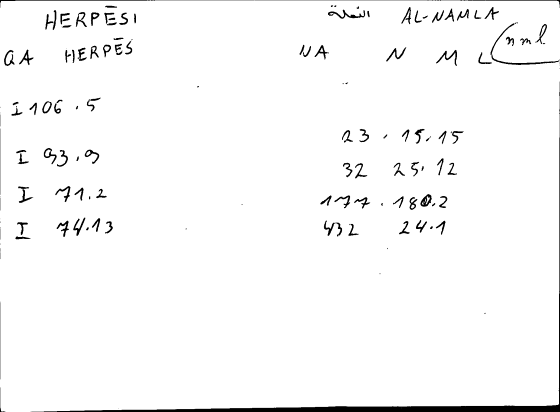 HERPĒSI النملة AL-NAMLA
QA HERPĒS NA N M L nml
I 106.5
23.15.15
I 93.9
32 25.12
I 71.2
177.180.2
I 74.13
432 24.1